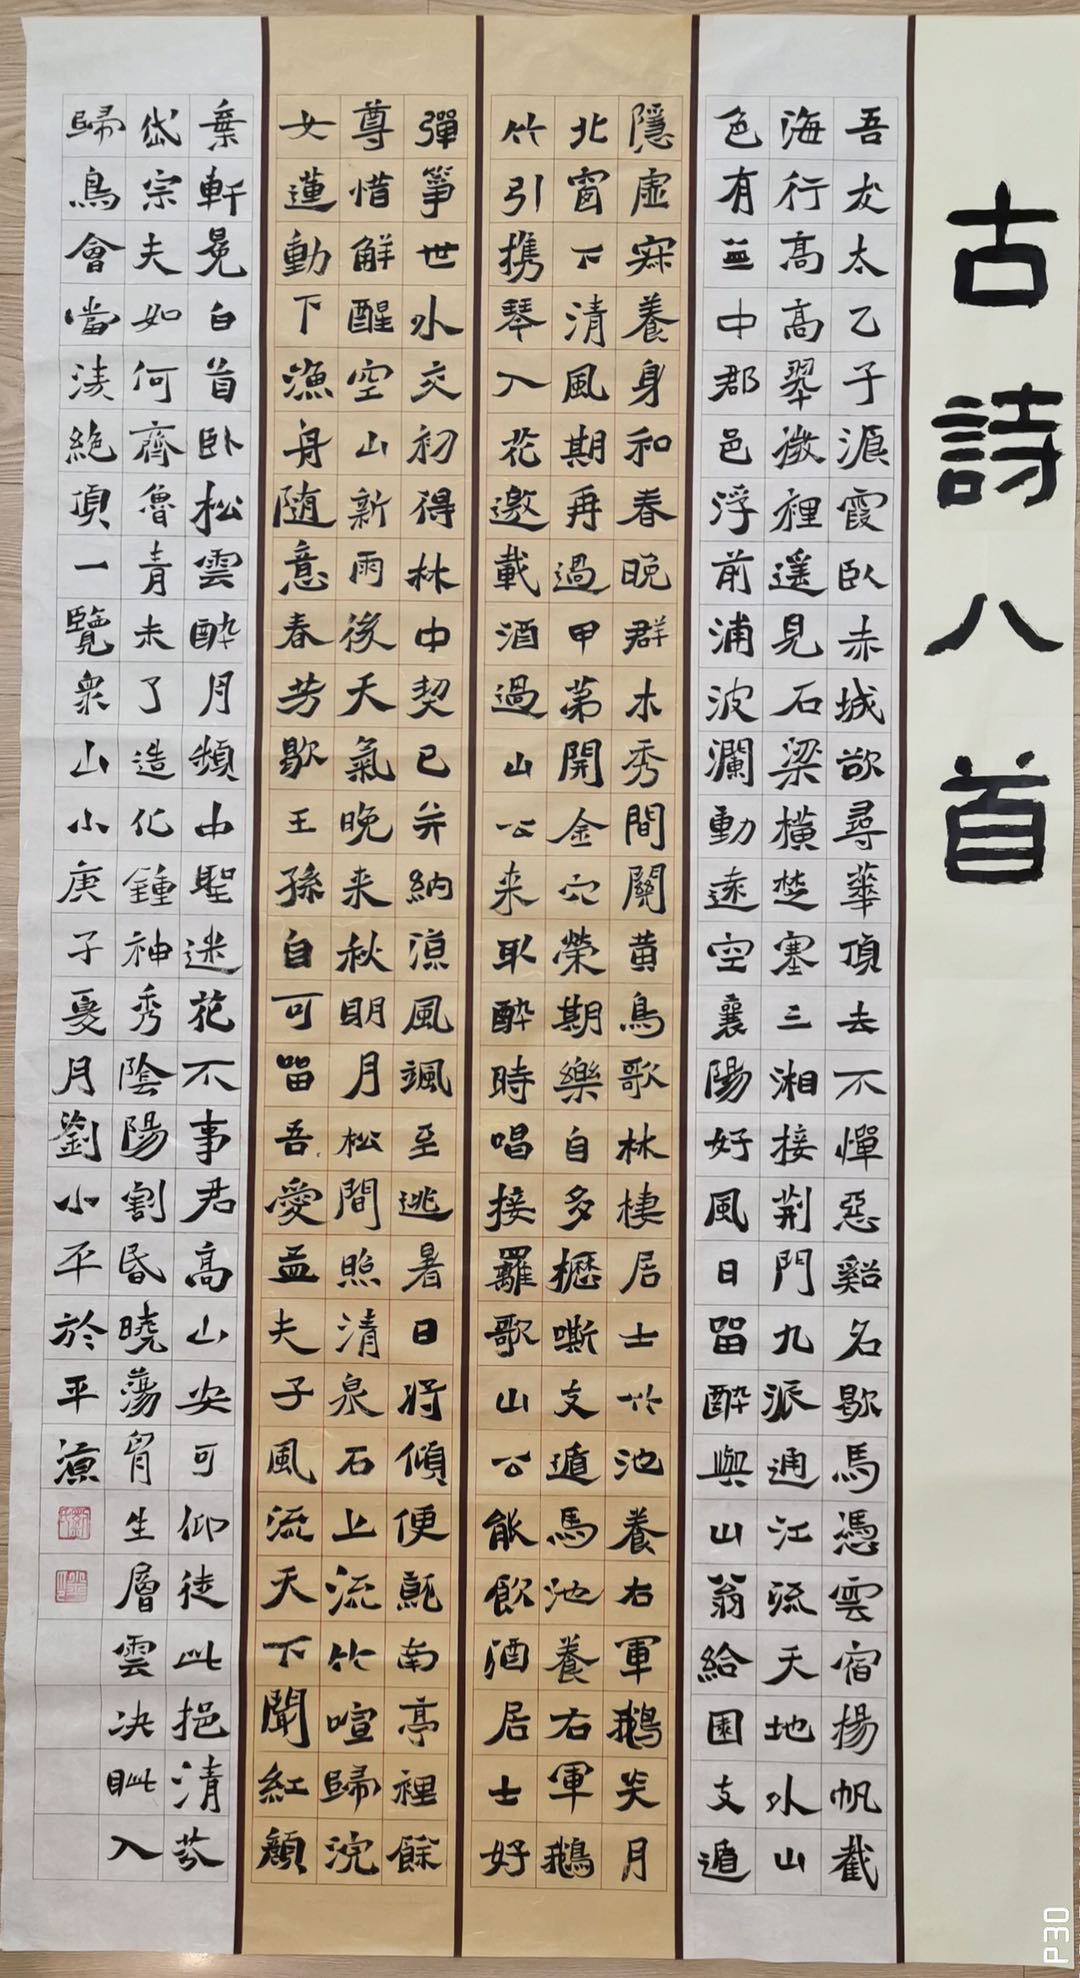 古詩八首
吾友太乙子湌霞臥赤城欲尋華頂去不憚惡谿名歇馬憑雲宿揚帆截
海行高高翠微裡遥見石梁橫楚塞三湘接荆門九派通江流天地外山
色有無中郡邑浮前浦波瀾動遠空襄陽好風日留醉與山翁給園支遁
隱虛寂養身和春晚群木秀間關黄鳥歌林棲居士竹池養右軍鵝炎月
北窗下清風期再過甲第開金穴榮期樂自多櫪嘶支遁馬池養右軍鵝
竹引携琴入花邀載酒過山公来取醉時唱接䍦歌山公能飲酒居士好
彈箏世外交初得林中契已并納凉風颯至逃暑日將傾便就南亭裡餘
尊惜解醒空山新雨後天氣晚来秋明月松間照清泉石上流竹喧歸浣
女蓮動下漁舟随意春芳歇王孫自可留吾愛孟夫子風流天下聞紅顏
棄軒冕白首臥松雲醉月頻中聖迷花不事君高山安可仰徒此挹清芬
岱宗夫如何齊魯青未了造化鍾神秀陰陽割昏曉蕩胷生層雲决眦入
歸鳥會當淩絕頂一覽衆山小庚子夏月劉小平於平凉
P30